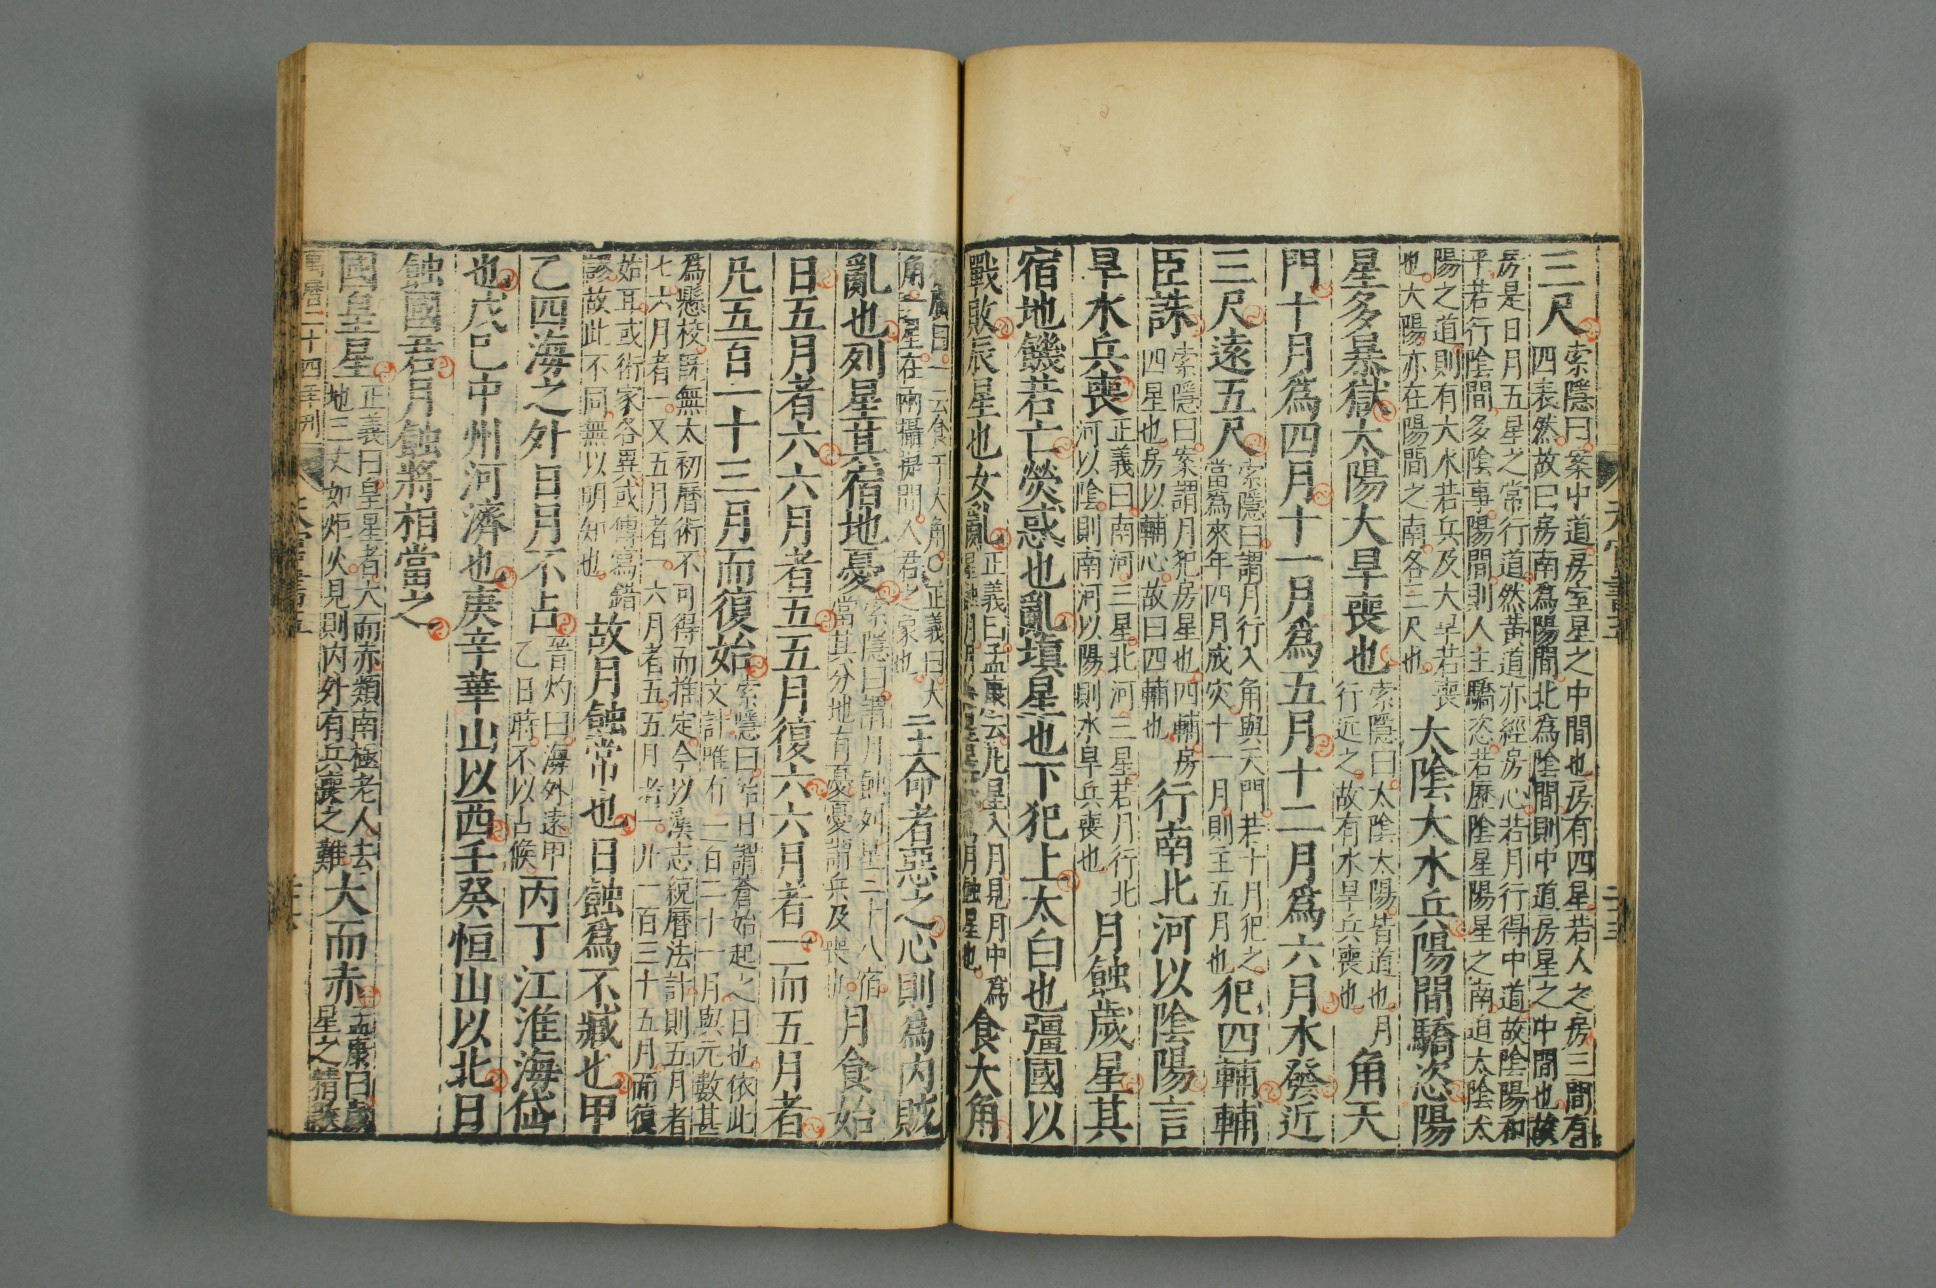 三尺索隱曰案中道房室星之中間也房有四星若人之房三間有
四表然故曰房南為陽間北為陰間則中道房星之中間也故
房是日月五星之常行道然黃道亦經房心若月行得中道故陰陽和
平若行陰間多陰事陽間則人主驕恣若歷陰星陽星之南迫太陰太
陽之道則有大水若兵及大旱若喪
也大陽亦在陽間之南各三尺也大陰大水兵陽間驕恣陽
星多暴獄太陽大旱喪也索隱曰太陰太陽皆道也月
行近之故有水旱兵喪也角天
門十月為四月十一月為五月十二月為六月水發近
三尺遠五尺索隱曰謂月行入角與天門若十月犯之
當為來年四月成災十一月則主五月也犯四輔輔
臣誅索隱曰案謂月犯房星也四輔房
四星也房以輔心故曰四輔也行南北河以陰陽言
旱水兵喪正義曰南河三星北河三星若月行北
河以陰則南河以陽則水旱兵喪也月蝕歲星其
宿地饑若亡熒惑也亂填星也下犯上太白也彊國以
戰敗辰星也女亂正義曰孟康云凡星入月見月中為
星蝕月月掩星星滅為月蝕星也食大角
徐廣曰一云食于大角〇正義曰大
角一星在兩攝提間人君之象也主命者惡之心則為內賊
亂也列星其宿地憂索隱曰謂月蝕列星二十八宿
當其分地有憂憂謂兵及喪也月食始
日五月者六六月者五五月復六六月者一而五月者
凡五百一十三月而復始索隱曰始日謂蒼始起之日也依此
文計唯有一百二十一月與元數甚
為懸校既無太初曆術不可得而推定今以漢志統曆法計則五月者
七六月者一又五月者一六月者五五月者一凡一百三十五月而復
始耳或術家各異或傳寫錯
謬故此不同無以明知也故月蝕常也日蝕為不臧也甲
乙四海之外日月不占晉灼曰海外遠甲
乙日時不以占候丙丁江淮海岱
也戊巳中州河濟也庚辛華山以西壬癸恒山以北日
蝕國君月蝕將相當之
國皇星正義曰皇星者大而赤類南極老人去
地三丈如炬火見則內外有兵喪之難大而赤孟康曰歲
星之精散
萬曆二十四年刊 天官書五